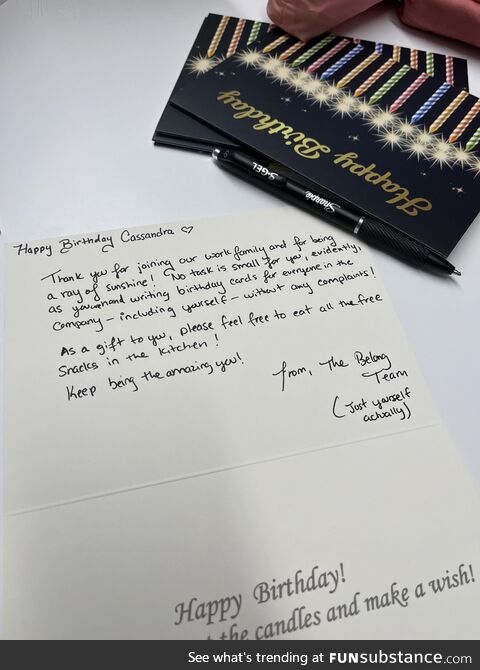 Happy Birthday
S·GEL
Sharpie
Happy Birthday Cassandra ♡
Thank you for joining our work family and for being
a ray of sunshine! No task is small for you, evidently,
as you hand writing birthday cards for everyone in the
company - including yourself - without any complaints!
As a gift to you, please feel free to eat all the free
snacks in the kitchen!
Keep being the amazing you!
from, The Belong
Team
(Just yourself
actually)
Happy Birthday!
the candles and make a wish!
See what's trending at FUNsubstance.com